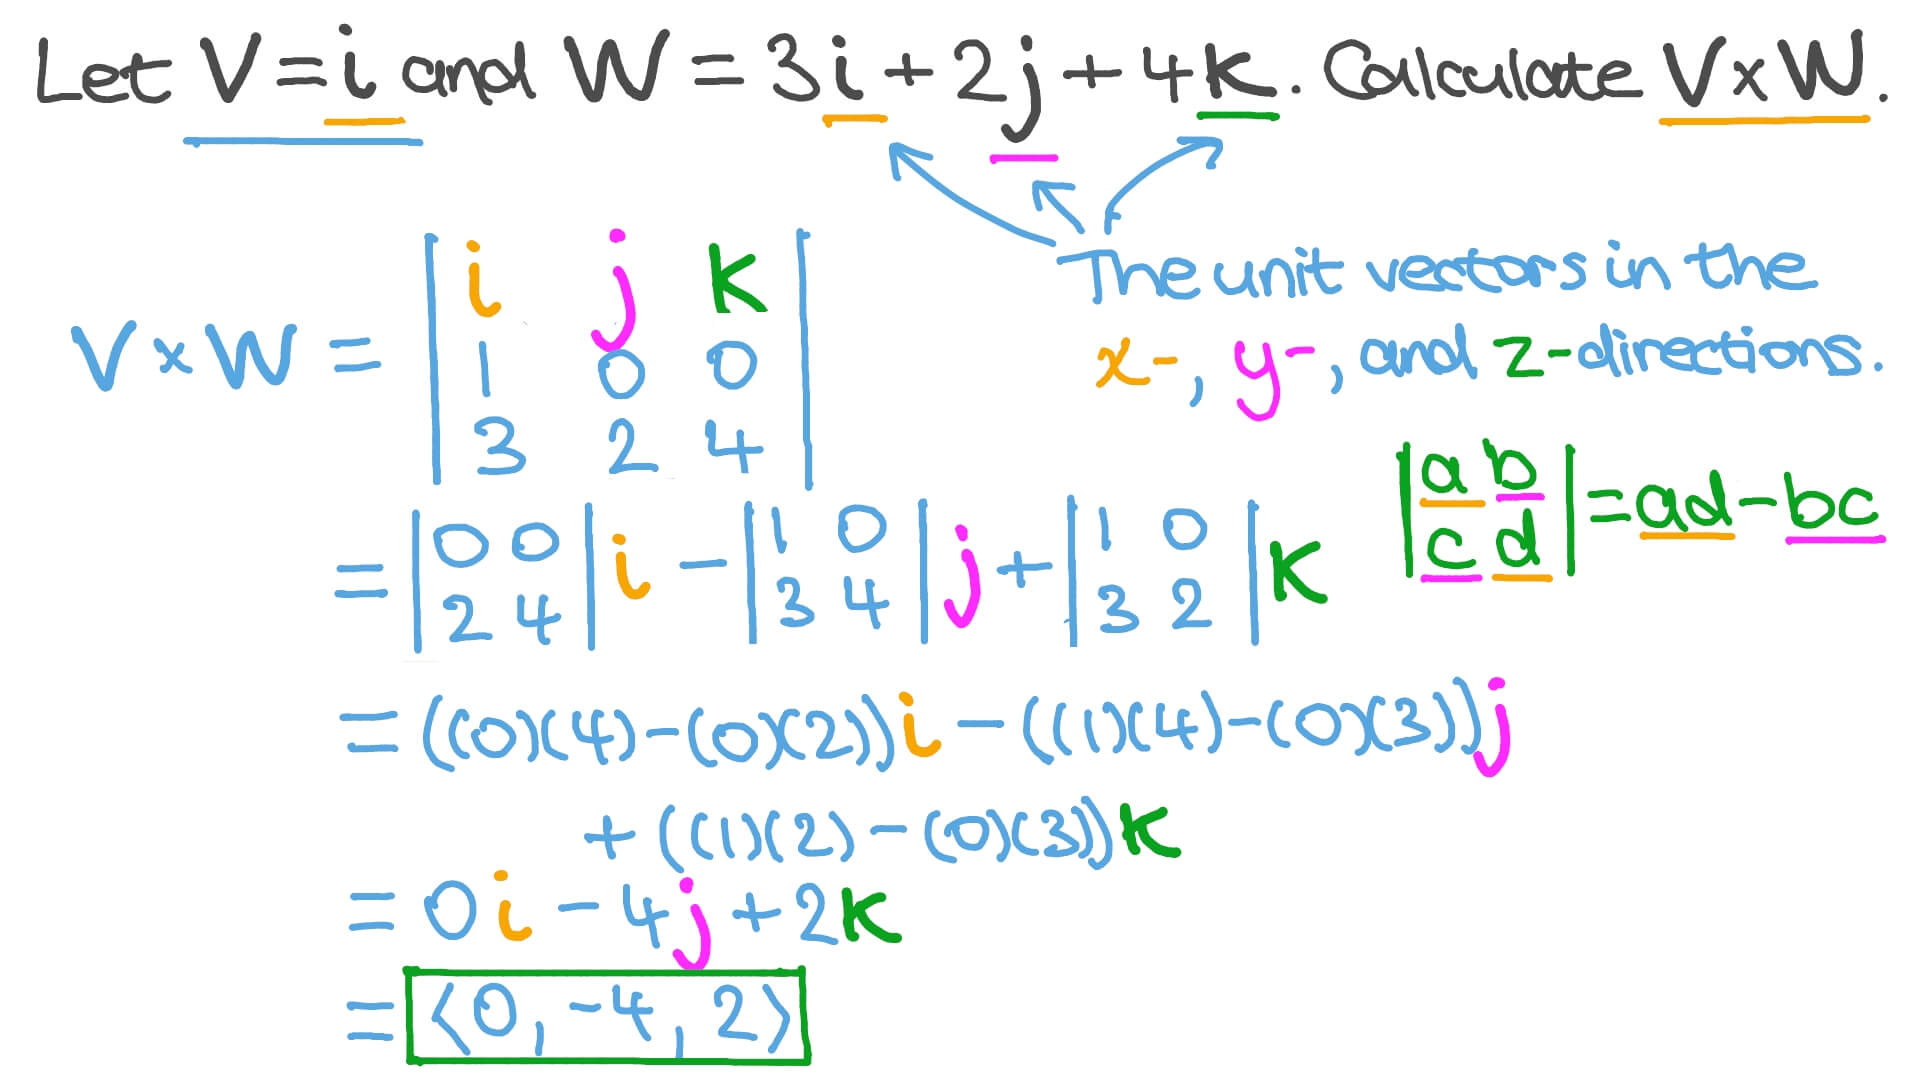 Let V = i and W = 3i + 2j + 4k. Calculate V x W.
The unit vectors in the
x-, y-, and z-directions.
V x W = | i j k |
| 1 0 0 |
| 3 2 4 |
| a b | = ad - bc
| c d |
= | 0 0 | i - | 1 0 | j + | 1 0 | k
| 2 4 | | 3 4 | | 3 2 |
= ((0)(4) - (0)(2))i - ((1)(4) - (0)(3))j
+ ((1)(2) - (0)(3))k
= 0i - 4j + 2k
= ⟨0, -4, 2⟩